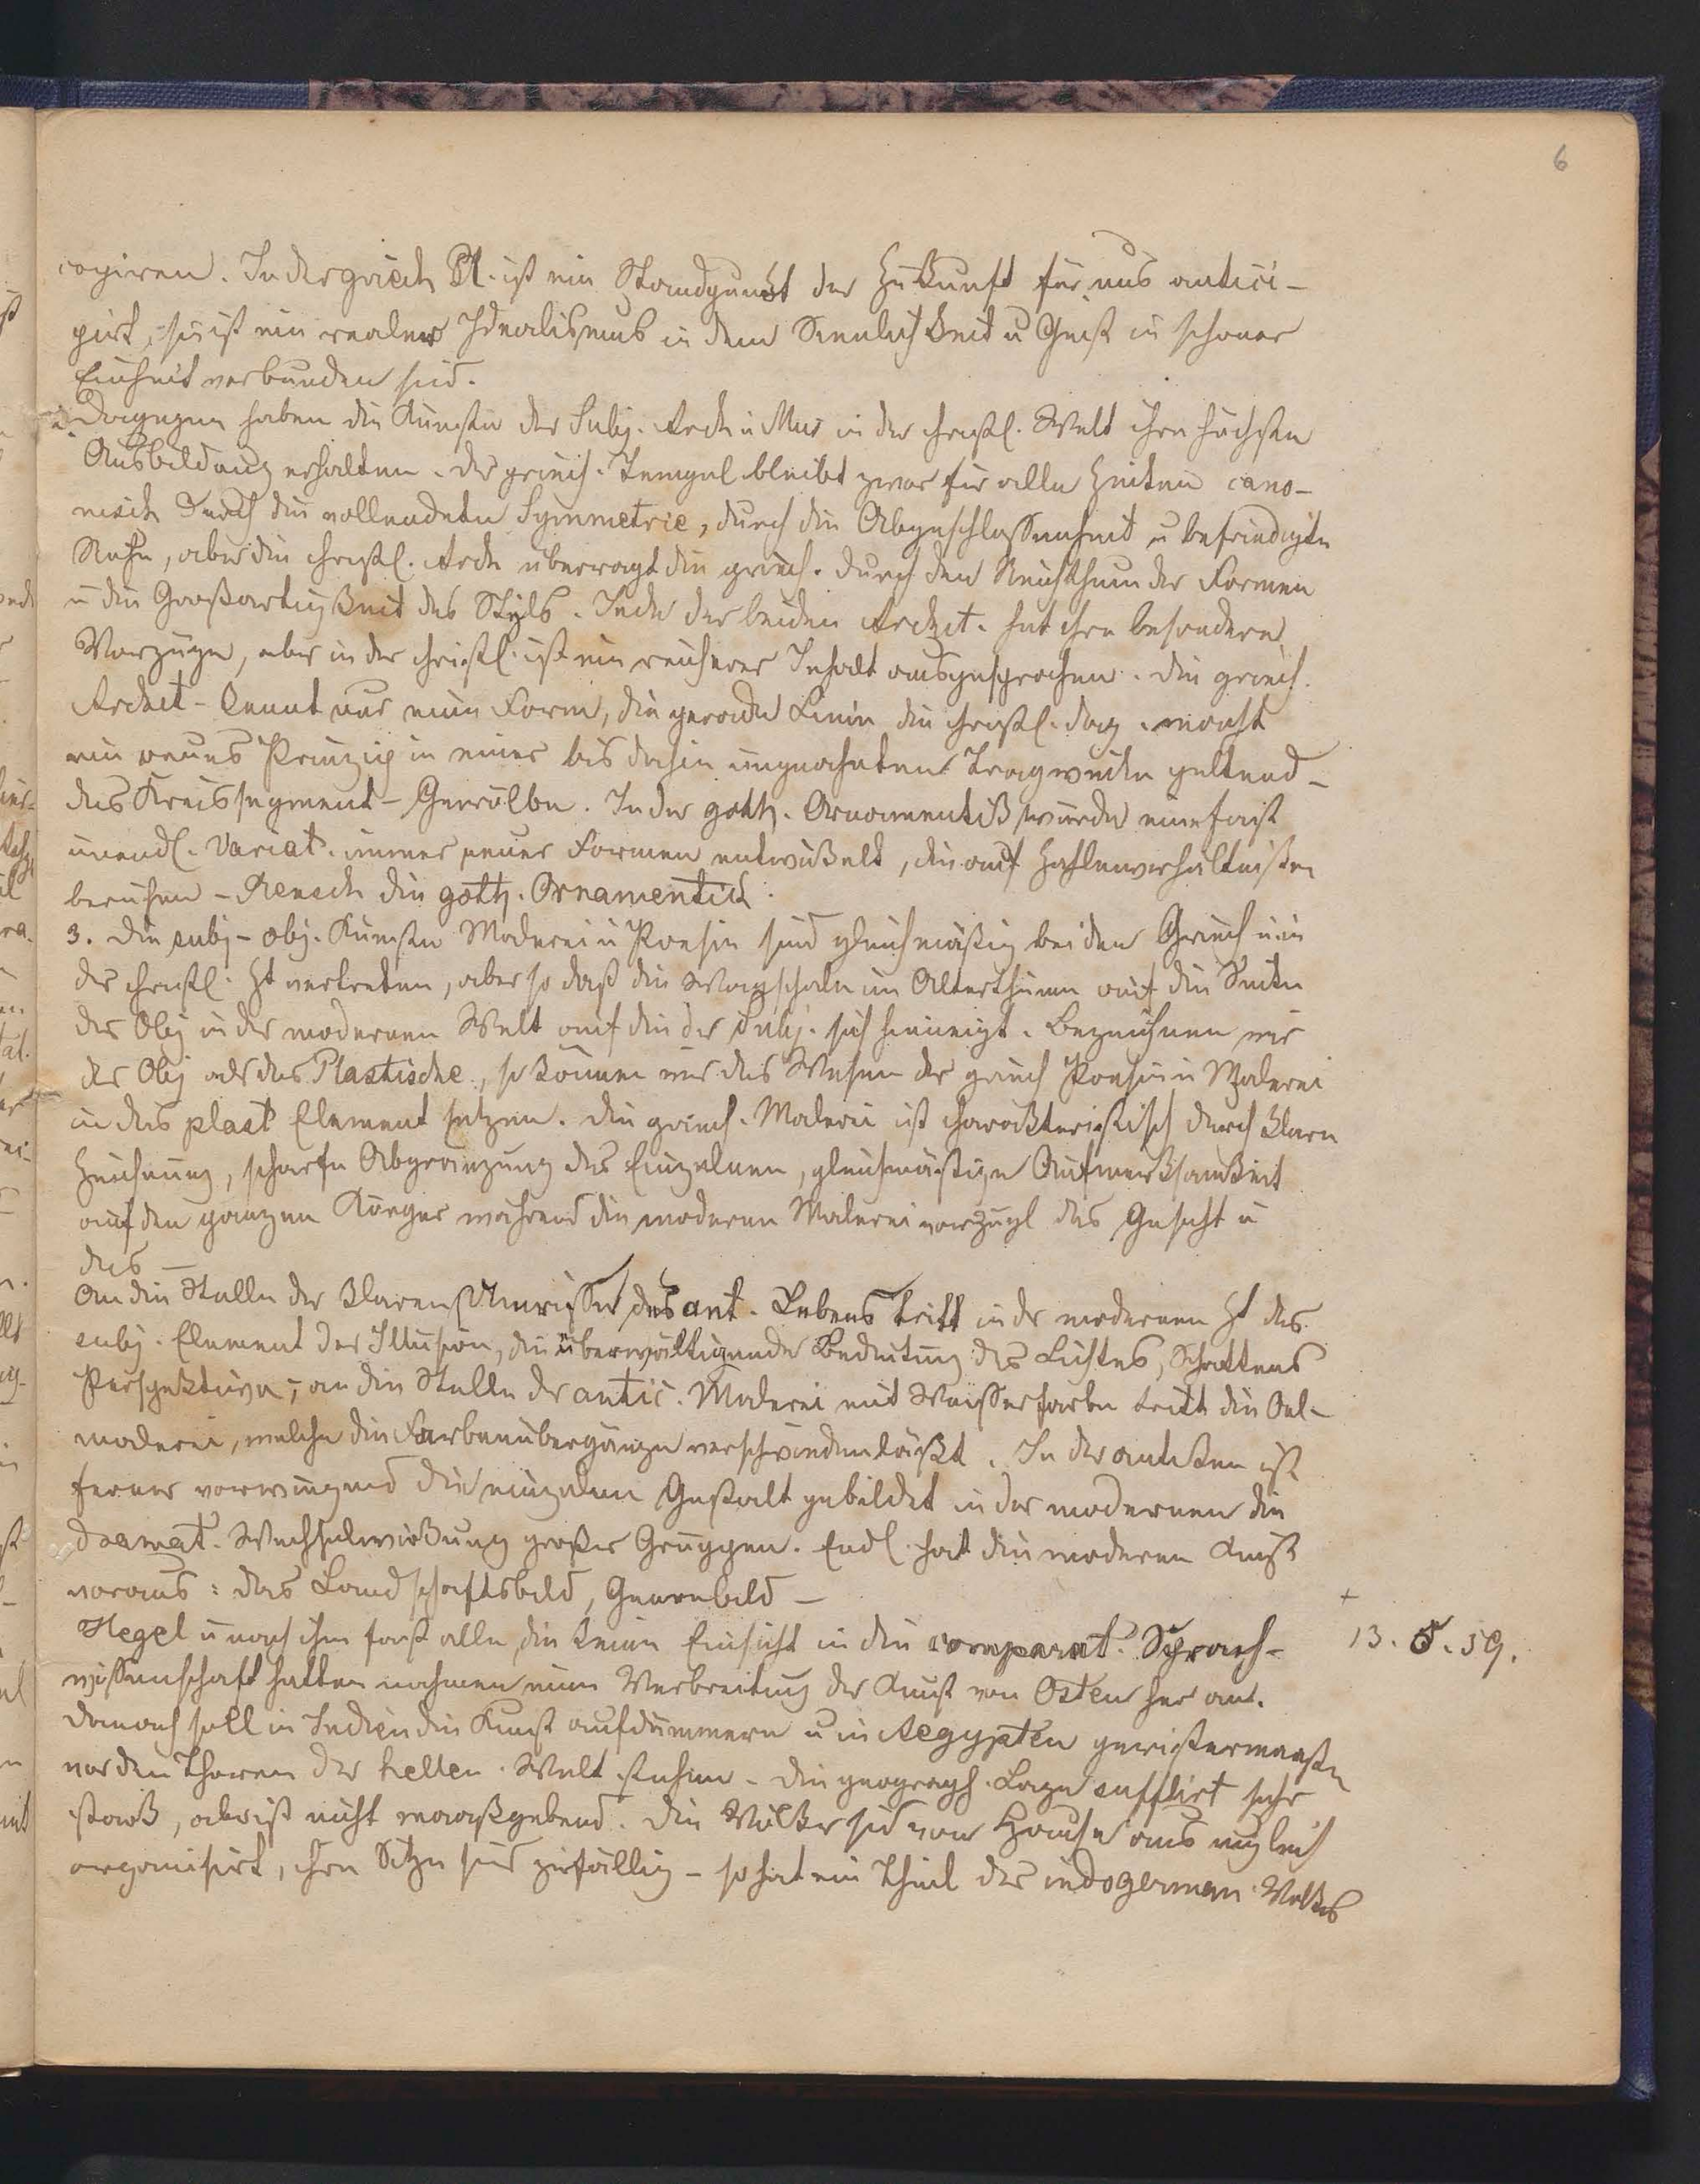 6
copiren. In der griech Pl. ist ein Standpunkt der Zukunft für uns antici-
pirt, sie ist ein realer Idealismus in dem Sinnlichkeit u Geist in schöner
Einheit verbunden sind.
2. Dagegen haben die Künste der Subj. Arch u Mus in der christl. Welt ihre höchste
Ausbildung erhalten. Der griech. Tempel bleibt zwar für alle Zeiten cano-
nisch durch die vollendete Symmetrie, durch die Abgeschlossenheit u befriedigte
Ruhe, aber die christl. Arch überragt die griech. durch den Reichthum der Formen
u die Großartigkeit des Styls. Jede der beiden Archit. hat ihre besondere
Vorzüge, aber in der christl. ist ein reicherer Inhalt ausgesprochen. Die griech.
Archit- kennt nur eine Form, die gerade Linie die christl. dag. macht
ein neues Prinzip in einer bis dahin ungeahnten Tragweite geltend -
das Kreissegment - Gewölbe. In der goth. Ornamentik wurde eine fast
unendl. Variat. immer neuer Formen entwickelt, die auf Zahlenverhältnißen
beruhen - Reusch die goth. Ornamentick.
3. Die subj - obj. Künste Malerei u Poesie sind gleichmäßig bei den Griech u in
der christl. Zt vertreten, aber so daß die Wagschale im Alterthum auf die Seite
der Obj in der modernen Welt auf die der Subj. sich hinneigt. Bezeichnen wir
der Obj als das Plastische, so können wir das Wesen der griech Poesie u Malerei
in das plast Element setzen. Die griech. Malerei ist charakteristisch durch klare
Zeichnung, scharfe Abgränzung des Einzelnen, gleichmäßige Aufmerksamkeit
auf den ganzen Körper während die moderne Malerei vorzügl das Gesicht u
das -
An die Stelle der klaren Umrisse des ant. Lebens tritt in der modernen Zt das
subj. Element der Illusion, die überwältigende Bedeutung des Lichtes, Schattens
Perspektive, an die Stelle der antic. Malerei mit Wasserfarbe tritt die Oel-
malerei, welche die Farbenübergänge verschwinden läßt. In der antiken ist
ferner vorwiegend die einzelne Gestalt gebildet in der modernen die
dramat. Wechselwirkung großer Gruppen. Endl. hat die moderne Kunst
voraus: das Landschaftsbild, Genrebild -
Hegel u nach ihm fast alle, die keine Einsicht in die comparat. Sprach-
wissenschaft hatten nahmen eine Verbreitung der Kunst von Osten her an.
Danach soll in Indien die Kunst aufdämmern u in Aegypten gewißermaaßen
vor den Thoren der hellen. Welt stehen. Die geograph. Lage influirt sehr
stark, aber ist nicht maaßgebend. Die Völker sind von Hause aus ungleich
organisirt, ihre Sitze sind zufällig - so hat ein Theil des indogerman. Volkes
+
13. 5. 59.